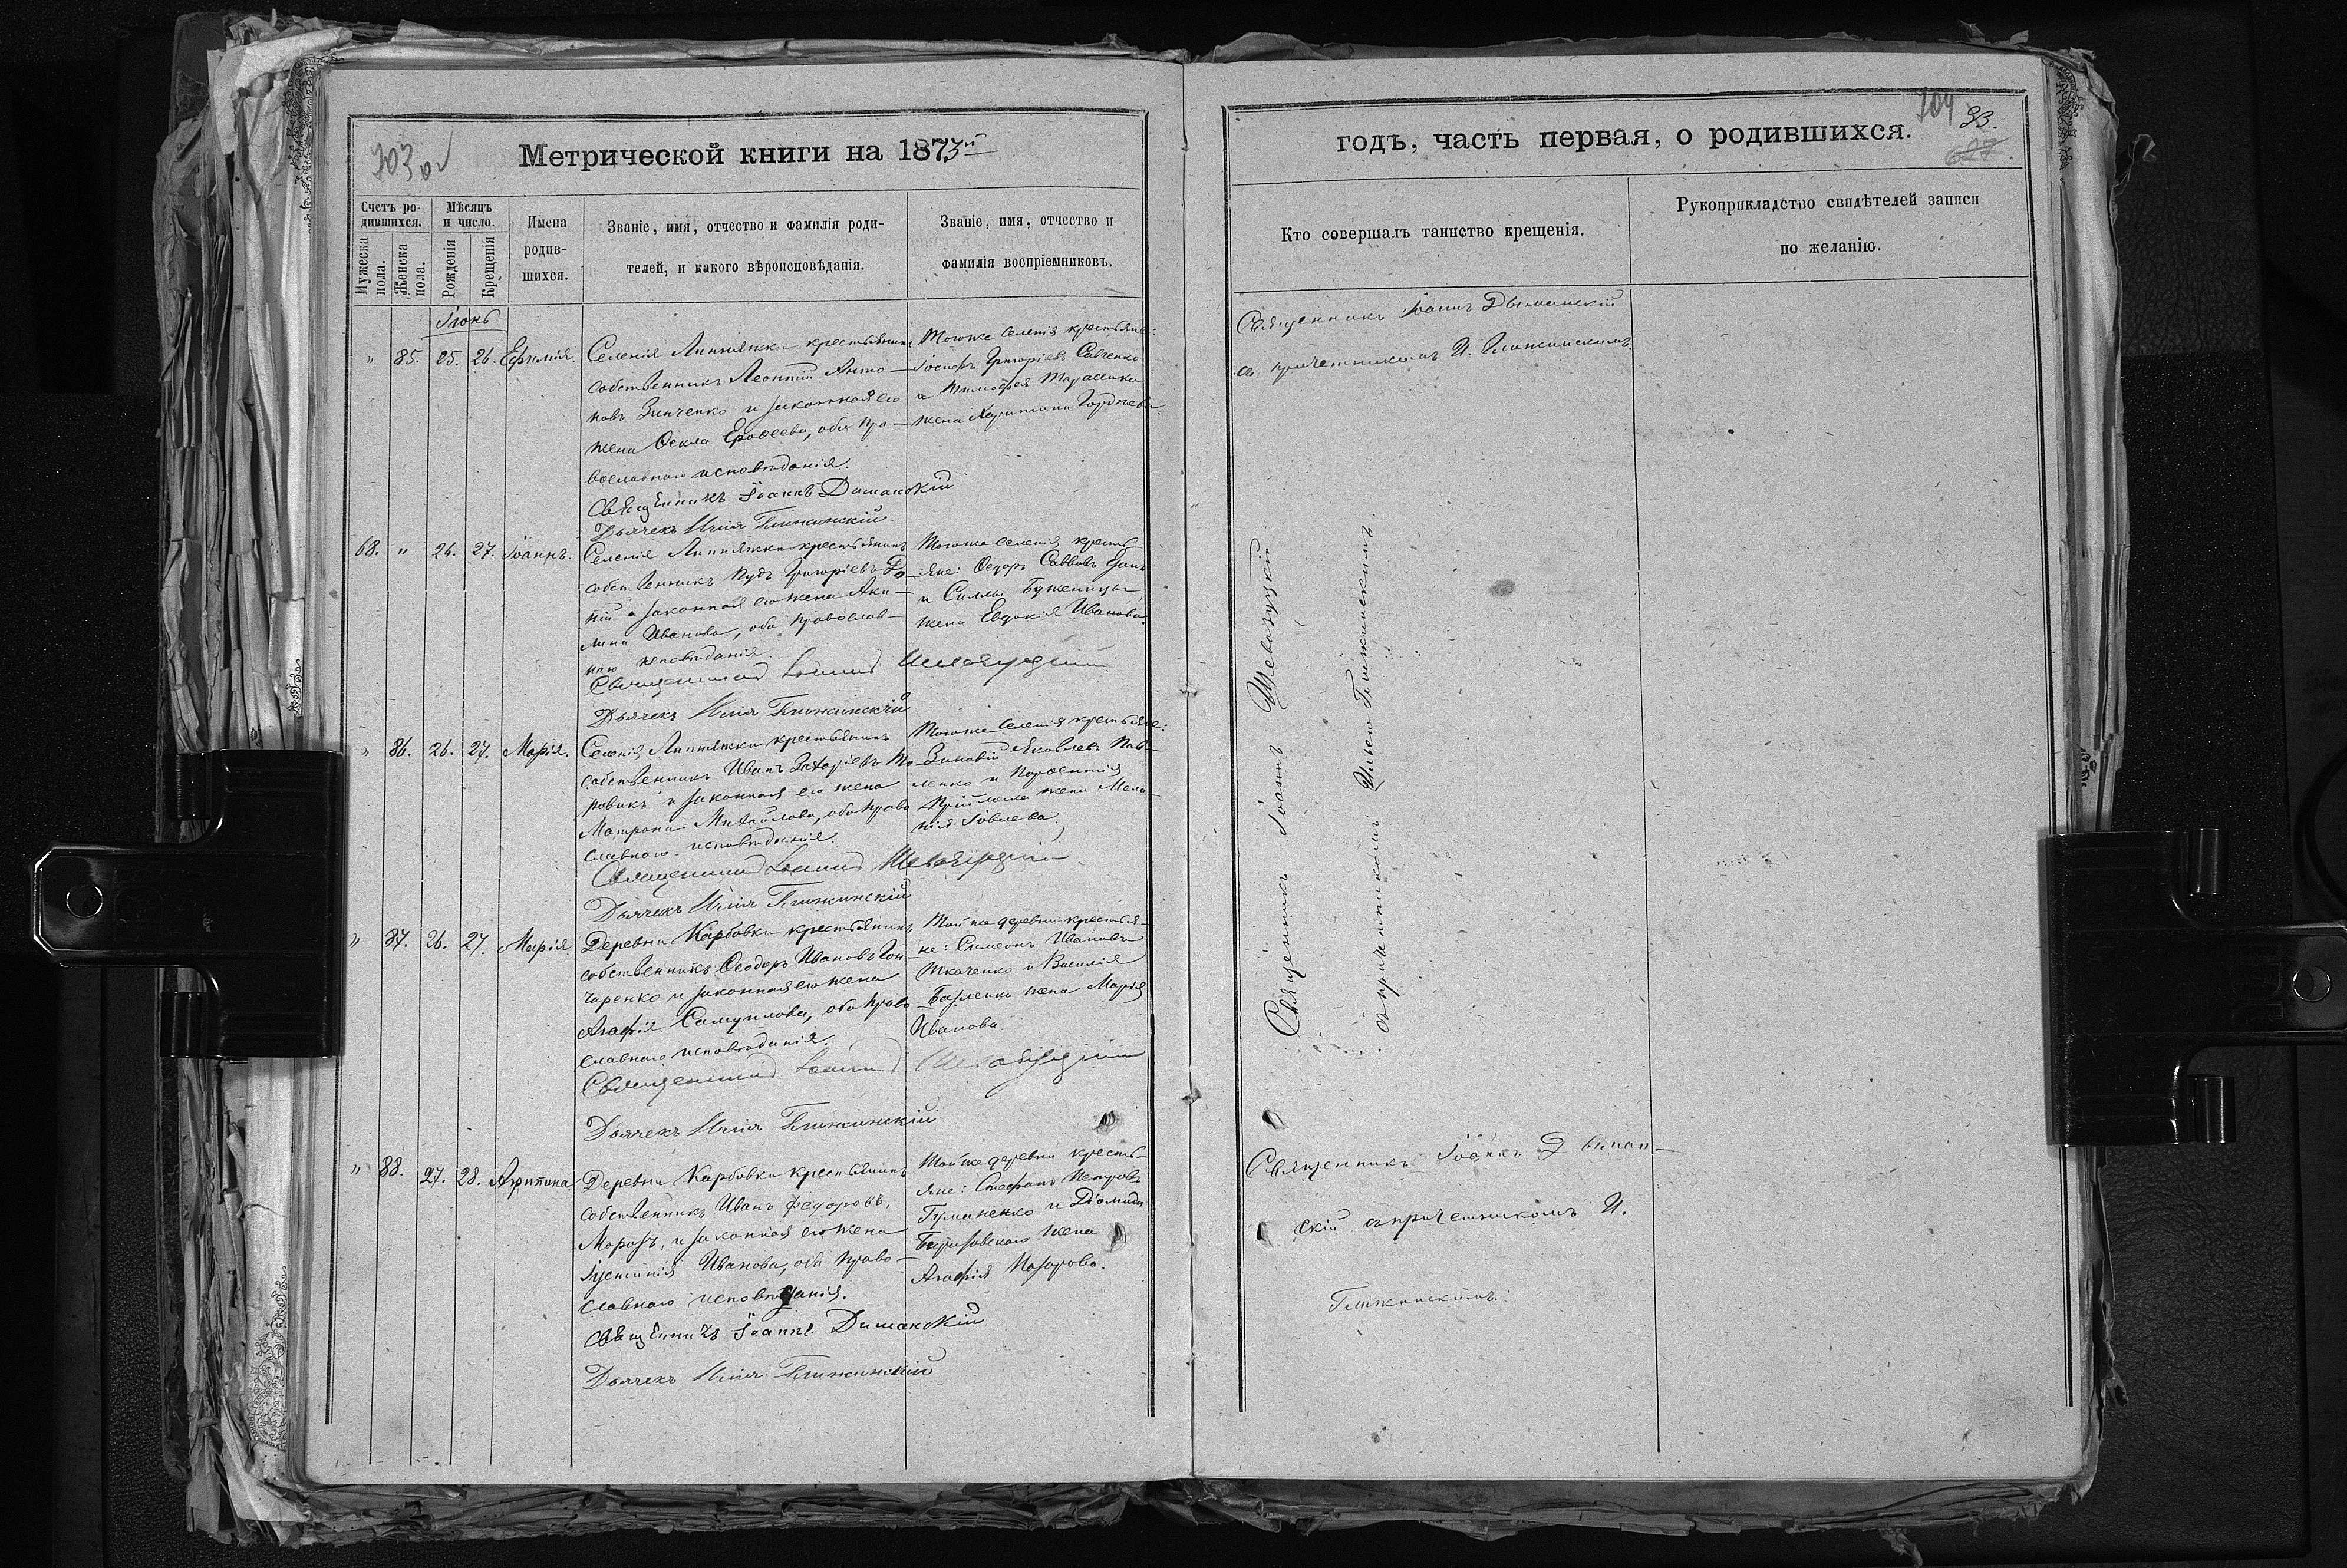 703 об
Метрической книги на 1873й
Счетъ ро-
дившихся.
Мужеска пола.
Женска пола.
Мѣсяцъ
и число.
Рожденія
Крещенія
Имена
родив-
шихся.
Званіе, имя, отчество и фамилія роди-
телей, и какого вѣроисповѣданія.
Званіе, имя, отчество и
фамилія воспріемниковъ.
Іюнь
" 85. 25. 26. Ефимія.
Селенія Липняжки крестьянинъ
собственникъ Леонтій Анто-
новъ Зинченко и законная его
жена Ѳекла Ероѳеева, оба пра-
вославнаго исповѣданія.
Священникъ Іоаннъ Дыманскій
Дьячекъ Илія Глижинскій
Тогоже селенія крестьяне:
Іосифъ Григоріевъ Савченко
и Тимофея Тарасенка
жена Харитина Гордѣева
68. " 26. 27. Іоаннъ.
Селенія Липняжки крестьянинъ
собственникъ Пудъ Григоріевъ
и законная его жена Аки-
лина Иванова, оба православ-
наго исповѣданія.
Священникъ Іоаннъ
Дьячекъ Илія Глижинскій
Тогоже селенія кресть-
яне: Ѳедоръ Саввовъ
и Силы Буженицы
жена Евдокія Иванова.
" 86. 26. 27. Марія.
Селенія Липняжки крестьянинъ
собственникъ Иванъ Захаріевъ То-
ровикъ и законная его жена
Матрона Михайлова, оба право
славнаго исповѣданія.
Священникъ Іоаннъ
Дьячекъ Илія Глижинскій
Тогоже селенія крестьяне:
Зиновій Яковлевъ Пав-
ленко и Парфентія
жена Мела-
нія Іовлева.
" 87. 26. 27. Марія.
Деревни Карбовки крестьянинъ
собственникъ Ѳеодоръ Ивановъ Гон-
чаренко и законная его жена
Агафія Самуилова, оба право
славнаго исповѣданія.
Священникъ Іоаннъ
Дьячекъ Илія Глижинскій
Той же деревни крестья-
не: Симеонъ Ивановъ
Ткаченко и Василія
жена Марія
Иванова.
" 88. 27. 28. Агрипина.
Деревни Карбовки крестьянинъ
собственникъ Иванъ Федоровъ,
Морозъ, и законная его жена
Іустинія Иванова, оба право-
славнаго исповѣданія.
Священникъ Іоаннъ Дыманскій
Дьячекъ Илія Глижинскій
Той же деревни кресть-
яне: Стефанъ Петровъ
Гуманенко и Діомида
жена
Агафія Назарова.
годъ, часть первая, о родившихся.
704 33.
627.
Кто совершалъ таинство крещенія.
Рукоприкладство свидѣтелей записи
по желанію.
Священникъ Іоаннъ Дыманскій
съ причетникомъ И. Глижинскимъ.
Священникъ Іоаннъ
съ причетникомъ Ильею Глижинскимъ.
Священникъ Іоаннъ Дыман-
скій съ причетникомъ И.
Глижинскимъ.